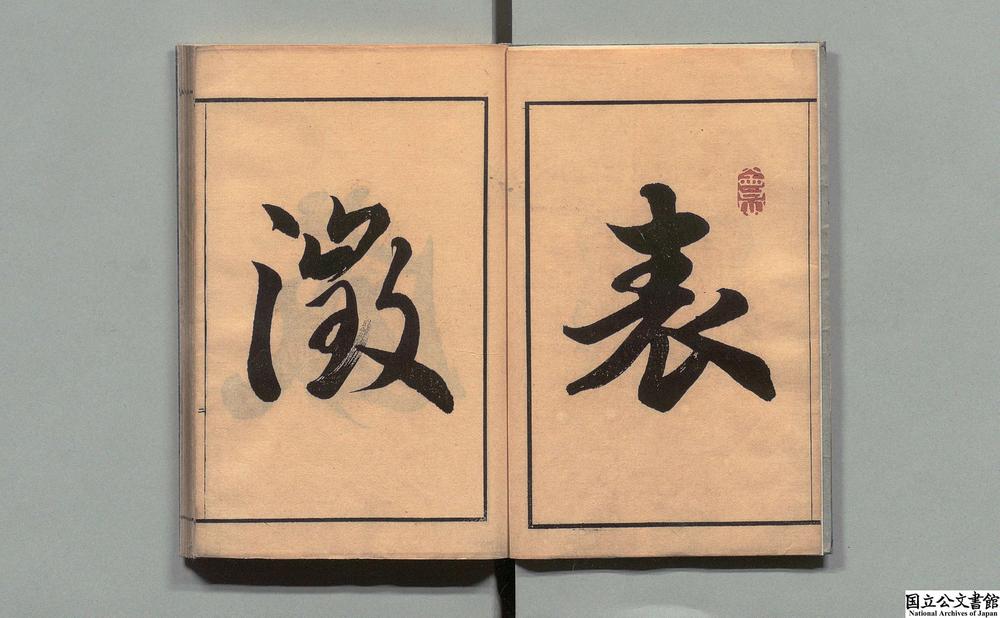 表
徴
国立公文書館
National Archives of Japan